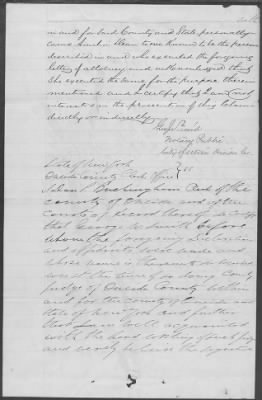 in and for said County and State personally
came to me known to be the person
described in and who executed the foregoing
letter of attorney and acknowledged that
she executed the same for the purpose therein
mentioned and I certify that I have no
interest in the prosecution of this claim
directly or indirectly
Notary Public
State of New York
Oneida County Clerk's Office } ss
I Buckingham Clerk of the
county of Oneida and of the
Courts of Record thereof do certify
that George W. Smith before
whom the foregoing declaration
and affidavit were made and
whose name is thereunto
was at the time of so doing County
Judge of Oneida County within
and for the county of Oneida and
State of New York and further
that I am well acquainted
with the hand writing of such Judge
and verily believe the signature